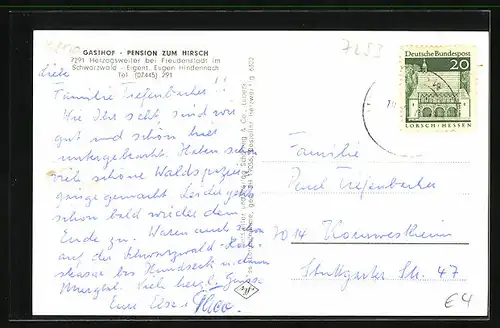 GASTHOF - PENSION ZUM HIRSCH
7291 Herzogsweiler bei Freudenstadt im
Schwarzwald - Eigent. Eugen Hindennach
Tel. (07445) 291
Liebe
Familie Tiefenbacher!!
Wie Ihr seht, sind wir
gut und schön hier
untergebracht. Haben schon
viele schöne Waldspazier-
gänge gemacht. Leider geht
schon bald wieder dem
Ende zu. Waren auch schon
auf der Schwarzwald-Hoch-
strasse bis Hundseck u. dem
Murgtal. Viele herzl. Grüsse
Eure Else +
7253
Deutsche Bundespost
20
LORSCH · HESSEN
Familie
Paul Tiefenbacher
7014 Kornwestheim
Stuttgarter Str. 47
€4